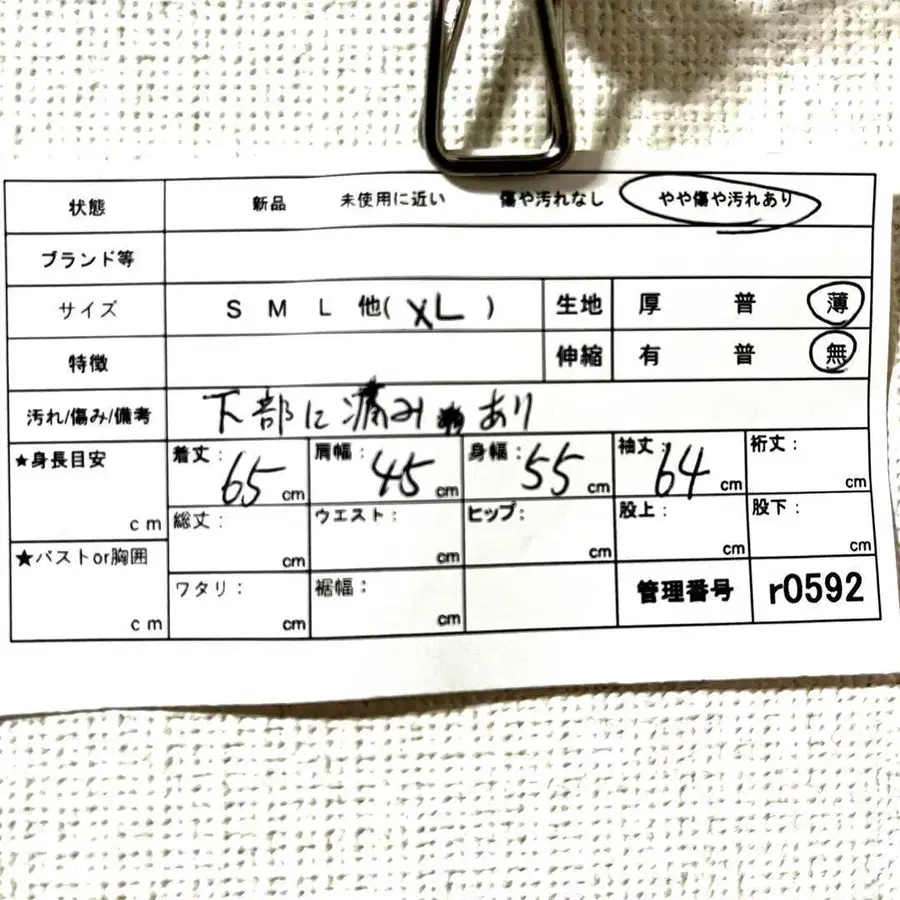 状態 新品 未使用に近い 傷や汚れなし やや傷や汚れあり
ブランド等
サイズ S M L 他( XL ) 生地 厚 普 薄
特徴 伸縮 有 普 無
汚れ/傷み/備考 下部に痛みあり
★身長目安 cm 着丈: 65 cm 肩幅: 45 cm 身幅: 55 cm 袖丈: 64 cm 裄丈: cm
総丈: cm ウエスト: cm ヒップ: cm 股上: cm 股下: cm
★バストor胸囲 cm ワタリ: cm 裾幅: cm 管理番号 r0592